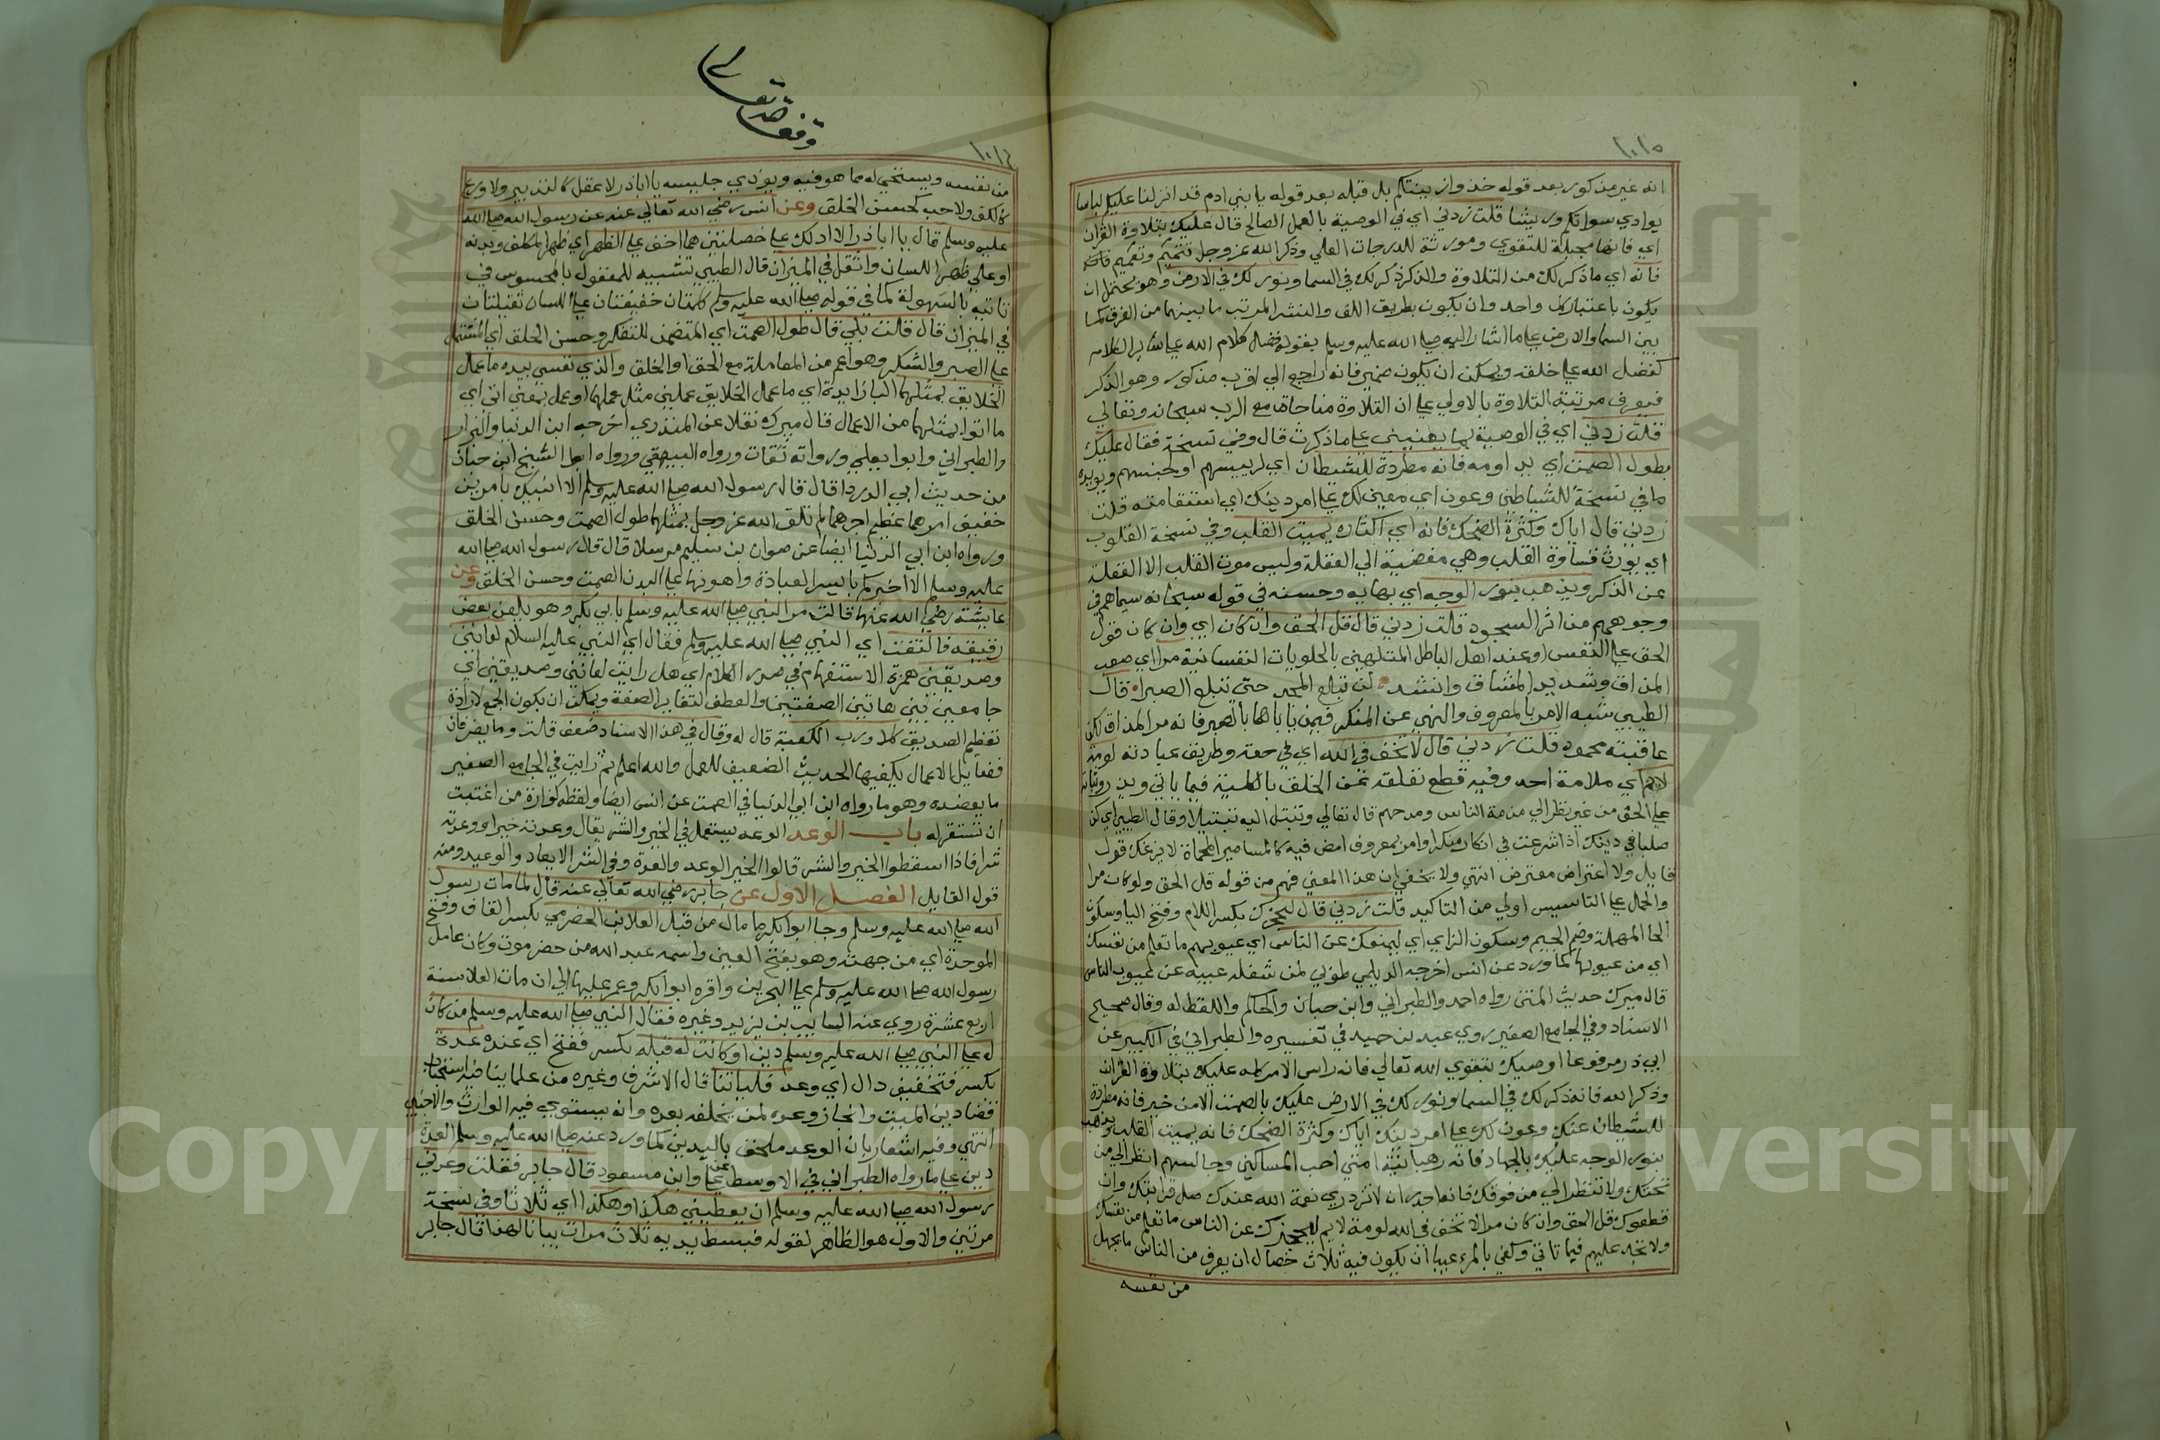 انه غير مذكور بعد قوله خذوا زينتكم بل قبله بعد قوله يا بني ادم قد انزلنا عليكم لباسا
يواري سواتكم وريشا قلت زدني اي في الوصية بالعمل الصالح قال عليك بتلاوة القران
اي فانها مجبلة للتقوي ومورثة للدرجات العلي وذكر الله عز وجل تتميم وتعميم
فانه اي ما ذكر لك من التلاوة والذكر ذكر لك في السما ونور لك في الارض وهو يحتمل ان
يكون باعتبار كل واحد وان يكون بطريق اللف والنشر المرتب ما بينهما من الفرق كما
بين السما والارض علي ما اشار اليه صلي الله عليه وسلم بقوله فضل كلام الله علي سائر الكلام
كفضل الله علي خلقه ويمكن ان يكون ضمير فانه راجع الي اقرب مذكور وهو الذكر
فيعرف مرتبة التلاوة بالاولي علي ان التلاوة مناجاة مع الرب سبحانه وتعالي
قلت زدني اي في الوصية بما يعينني علي ما ذكرت قال وفي نسخة فقال عليك
بطول الصمت اي بدوامه فانه مطردة للشيطان اي لرييسهم او لجنسهم ويويده
ما في نسخة للشياطين وعون اي معين لك علي امر دينك اي استقامته قلت
زدني قال اياك وكثرة الضحك فانه اي اكثاره يميت القلب وفي نسخة القلوب
اي يورث قساوة القلب وهي مفضية الي الغفلة وليس موت القلب الا الغفلة
عن الذكر ويذهب بنور الوجه اي بهايه وحسنه في قوله سبحانه سيماهم في
وجوههم من اثر السجود قلت زدني قال قل الحق وان كان اي وان كان قول
الحق علي النفس او عند اهل الباطل المتلهين بالحلويات النفسانية مرا اي صعب
المذاق وشديد المشاق وانشد لن تبلغ المجد حتي تبلع الصبرا قال
الطيبي شبه الامر بالمعروف والنهي عن المنكر فيمن ياباها بالصبر فانه مر المذاق لكن
عاقبته محمودة قلت زدني قال لا تخف في الله اي في حقه وطريق عبادته لومة
لايم اي ملامة احد وفيه قطع تعلقه عن الخلق بالكلية فيما ياتي ويذر وثباته
علي الحق من غير نظر الي مذمة الناس ومدحهم قال تعالي وتبتل اليه تبتيلا وقال الطيبي اي كن
صلبا في دينك اذا شرعت في انكار منكر او امر بمعروف امض فيه كالمسامير المحماة لا يزعك قول
قايل ولا اعتراض معترض انتهي ولا يخفي ان هذا المعني فهم من قوله قل الحق ولو كان مرا
والحمل علي التاسيس اولي من التاكيد قلت زدني قال ليحجزك بكسر اللام وفتح اليا وسكون
الحا المهملة وضم الجيم وسكون الزاي اي ليمنعك عن الناس اي عيوبهم ما تعلم من نفسك
اي من عيوبها كما ورد عن انس اخرجه الديلمي طوبي لمن شغله عيبه عن عيوب الناس
قال ميرك حديث المتن رواه احمد والطبراني وابن حبان والحاكم واللفظ له وقال صحيح
الاسناد وفي الجامع الصغير روي عبد بن حميد في تفسيره والطبراني في الكبير عن
ابي ذر مرفوعا اوصيك بتقوي الله تعالي فانه راس الامر كله عليك بتلاوة القران
وذكر الله فانه ذكر لك في السما ونور لك في الارض عليك بالصمت الا من خير فانه مطردة
للشيطان عنك وعون لك علي امر دينك اياك وكثرة الضحك فانه يميت القلب ويذهب
بنور الوجه عليك بالجهاد فانه رهبانية امتي احب المساكين وجالسهم انظر الي من
تحتك ولا تنظر الي من فوقك فانه اجدر ان لا تزدري نعمة الله عندك صل قرابتك وان
قطعوك قل الحق وان كان مرا لا تخف في الله لومة لايم ليحجزك عن الناس ما تعلم من نفسك
ولا تجد عليهم فيما تاتي وكفي بالمرء عيبا ان يكون فيه ثلاث خصال ان يعرف من الناس ما يجهل
من نفسه
وقف لله تعالي
من نفسه ويستحي له مما هو فيه ويوذي جليسه يا اباذر لا عقل كالتدبير ولا ورع
كالكف ولا حب كحسن الخلق وعن انس رضي الله تعالي عنه عن رسول الله صلي الله
عليه وسلم قال يا اباذر الا ادلك علي خصلتين هما اخف علي الظهر اي ظهر المكلف وبدنه
او علي ظهر اللسان واثقل في الميزان قال الطيبي تشبيه للمعقول بالمحسوس في
تاتيه بالسهولة كما في قوله صلي الله عليه وسلم كلمتان خفيفتان علي اللسان ثقيلتان
في الميزان قال قالت بلي قال طول الصمت اي المتضمن للتفكر وحسن الخلق اي المشتمل
علي الصبر والشكر وهو اعم من المعاملة مع الحق او الخلق والذي نفسي بيده ما عمل
الخلايق بمثلهما البا زايدة اي ما عمل الخلايق عملين مثل عملهما او عمل بمعني اتي اي
ما اتوا بمثلهما من الاعمال قال ميرك نقلا عن المنذري اخرجه ابن الدنيا والبزار
والطبراني وابوا يعلي ورواته ثقات ورواه البيهقي ورواه ابو الشيخ ابن حبان
من حديث ابي الدردا قال قال رسول الله صلي الله عليه وسلم الا انبيك بامرين
خفيف امرهما عظيم اجرهما لم تلق الله عز وجل بمثلهما طول الصمت وحسن الخلق
ورواه ابن ابي الدنيا ايضا عن صوان بن سليم مرسلا قال قال رسول الله صلي الله
عليه وسلم الا اخبركم بايسر العبادة واهونها علي البدن الصمت وحسن الخلق وعن
عايشة رضي الله عنها قالت مر النبي صلي الله عليه وسلم بابي بكر وهو يلعن بعض
رقيقه فالتفت اي النبي صلي الله عليه وسلم فقال اي النبي عليه السلام لعانين
وصديقين همزة الاستفهام في صدر الكلام اي هل رايت لعانين وصديقين اي
جامعين بين هاتين الصفتين والعطف لتغاير الصفة ويمكن ان يكون الجمع لارادة
تعظيم الصديق كلا ورب الكعبة قال له وقال في هذا الاسناد ضعف قالت وما يضر فان
فضايل الاعمال يكفيها الحديث الضعيف للعمل والله اعلم ثم رايت في الجامع الصغير
ما يعضده وهو ما رواه ابن ابي الدنيا في الصمت عن انس ايضا ولفظه كفارة من اغتبت
ان تستغفر له باب الوعد الوعد يستعمل في الخير والشر يقال وعدته خيرا ووعدته
شرا فاذا اسقطوا الخير والشر قالوا الخير الوعد والعدة وفي الشر الايعاد والوعيد ومنه
قول القايل الفصل الاول عن جابر رضي الله تعالي عنه قال لما مات رسول
الله صلي الله عليه وسلم وجا ابوا بكر ما مال من قبل العلا ابن الحضرمي بكسر القاف وفتح
الموحدة اي من جهته وهو بفتح العين واسمه عبد الله من حضر موت وكان عامل
رسول الله صلي الله عليه وسلم علي البحرين واقره ابوا بكر وعمر عليها الي ان مات العلا سنة
اربع عشرة روي عنه السايب بن يزيد وغيره فقال النبي صلي الله عليه وسلم من كان
له علي النبي صلي الله عليه وسلم دين او كانت له قبله بكسر ففتح اي عنده عدة
بكسر فتخفيف دال اي وعد فلياتنا قال الاشرف وغيره من علماينا فيه استحباب
قضا دين الميت وانجاز وعده لمن يخلفه بعده وانه يستوي فيه الوارث والاجنبي
انتهي وفيه اشعار بان الوعد ملحق بالدين كما ورد عنه صلي الله عليه وسلم العدة
دين علي ما رواه الطبراني في الاوسط عن علي وابن مسعود قال جابر فقلت وعدني
رسول الله صلي الله عليه وسلم ان يعطيني هكذا وهكذا اي ثلاثا وفي نسخة
مرتين والاول هو الظاهر لقوله فبسط يديه ثلاث مرات بيانا لهذا قال جابر
Copyright © King Saud University